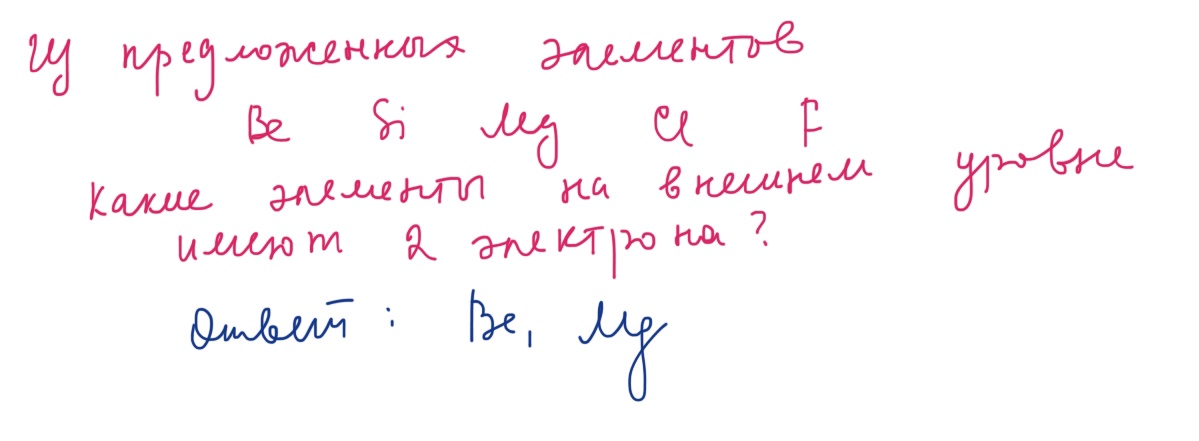 Из предложенных элементов
Be Si Mg Cl F
Какие элементы на внешнем уровне
имеют 2 электрона?
Ответ: Be, Mg